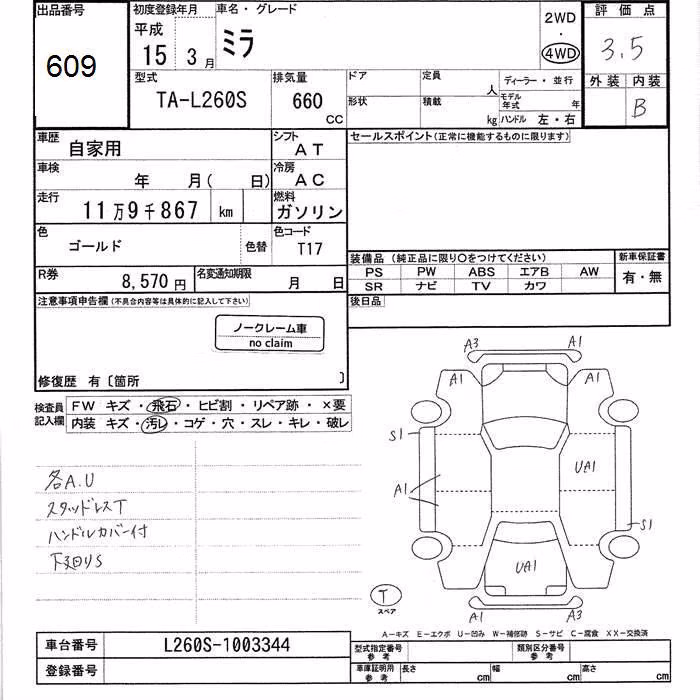 出品番号
609
初度登録年月
平成
15 3月
車名・グレード
ミラ
2WD
・
4WD
評価点
3.5
外装 内装
B
型式
TA-L260S
排気量
660
CC
ドア
定員
人
形状
積載
kg
ディーラー・並行
モデル年式 年
ハンドル 左・右
車歴
自家用
シフト
AT
車検
年 月( 日)
冷房
AC
走行
11万9千867 km
燃料
ガソリン
色
ゴールド
色替
色コード
T17
R券
8,570円
名変通知期限
月 日
セールスポイント(正常に機能するものに限ります)
装備品(純正品に限り○をつけてください)
PS PW ABS エアB AW
SR ナビ TV カワ
新車保証書
有・無
後日品
注意事項申告欄(不具合内容等は具体的に記入して下さい)
ノークレーム車
no claim
修復歴 有〔箇所 〕
検査員
記入欄
FW キズ・飛石・ヒビ割・リペア跡・×要
内装 キズ・汚レ・コゲ・穴・スレ・キレ・破レ
各A.U
スタッドレスT
ハンドルカバー付
下廻りS
A3 A1
A1 A1
S1
A1
UA1
S1
UA1
A1 A3
T
スペア
A―キズ E―エクボ U―凹み W―補修跡 S―サビ C―腐食 XX―交換済
車台番号
L260S-1003344
登録番号
型式指定番号
参考
類別区分番号
参考
車庫証明用
参考
長さ cm
幅 cm
高さ cm